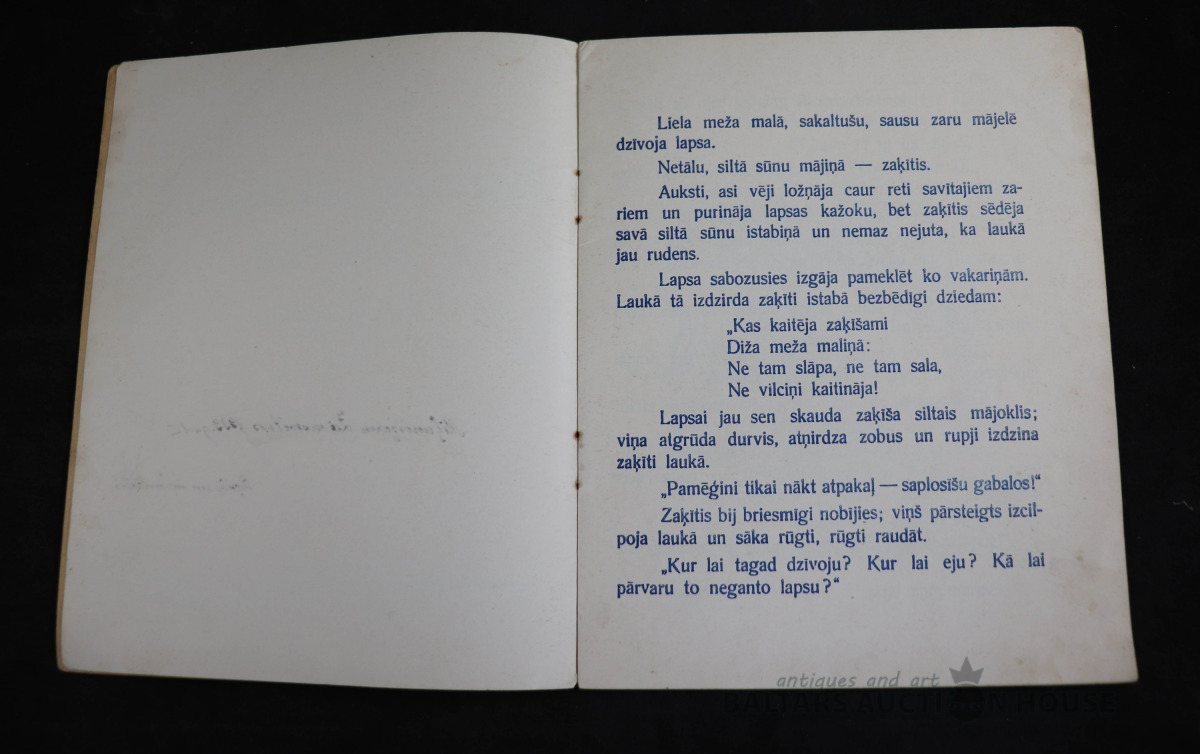 Liela meža malā, sakaltušu, sausu zaru mājelē
dzīvoja lapsa.
Netālu, siltā sūnu mājiņā — zaķītis.
Auksti, asi vēji ložņāja caur reti savītajiem za-
riem un purināja lapsas kažoku, bet zaķītis sēdēja
savā siltā sūnu istabiņā un nemaz nejuta, ka laukā
jau rudens.
Lapsa sabozusies izgāja pameklēt ko vakariņām.
Laukā tā izdzirda zaķīti istabā bezbēdīgi dziedam:
„Kas kaitēja zaķīšami
Diža meža maliņā:
Ne tam slāpa, ne tam sala,
Ne vilciņi kaitināja!
Lapsai jau sen skauda zaķīša siltais mājoklis;
viņa atgrūda durvis, atņirdza zobus un rupji izdzina
zaķīti laukā.
„Pamēģini tikai nākt atpakaļ — saplosīšu gabalos!“
Zaķītis bij briesmīgi nobījies; viņš pārsteigts izcil-
poja laukā un sāka rūgti, rūgti raudāt.
„Kur lai tagad dzīvoju? Kur lai eju? Kā lai
pārvaru to neganto lapsu?“
antiques and art
BALTARS AUCTION HOUSE